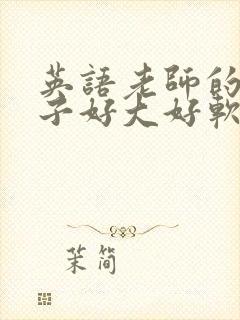 英語老師的
子好大好軟
茉簡